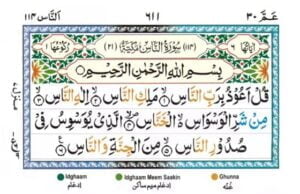 النَّاس ١١٤ ٦١١ عَمَّ ٣٠
اٰيَاتُهَا ٦ (١١٤) سُوْرَةُ النَّاسِ مَدَنِيَّةٌ (٢١) رُكُوْعُهَا ١
بِسْمِ اللّٰهِ الرَّحْمٰنِ الرَّحِيْمِ
قُلْ اَعُوْذُ بِرَبِّ النَّاسِ ۙ مَلِكِ النَّاسِ ۙ اِلٰهِ النَّاسِ ۙ
مِنْ شَرِّ الْوَسْوَاسِ الْخَنَّاسِ ۙ الَّذِيْ يُوَسْوِسُ فِيْ
صُدُوْرِ النَّاسِ ۙ مِنَ الْجِنَّةِ وَالنَّاسِ
Idghaam Idghaam Meem Saakin Ghunna
ادغام ادغام میم ساکن غُنّہ